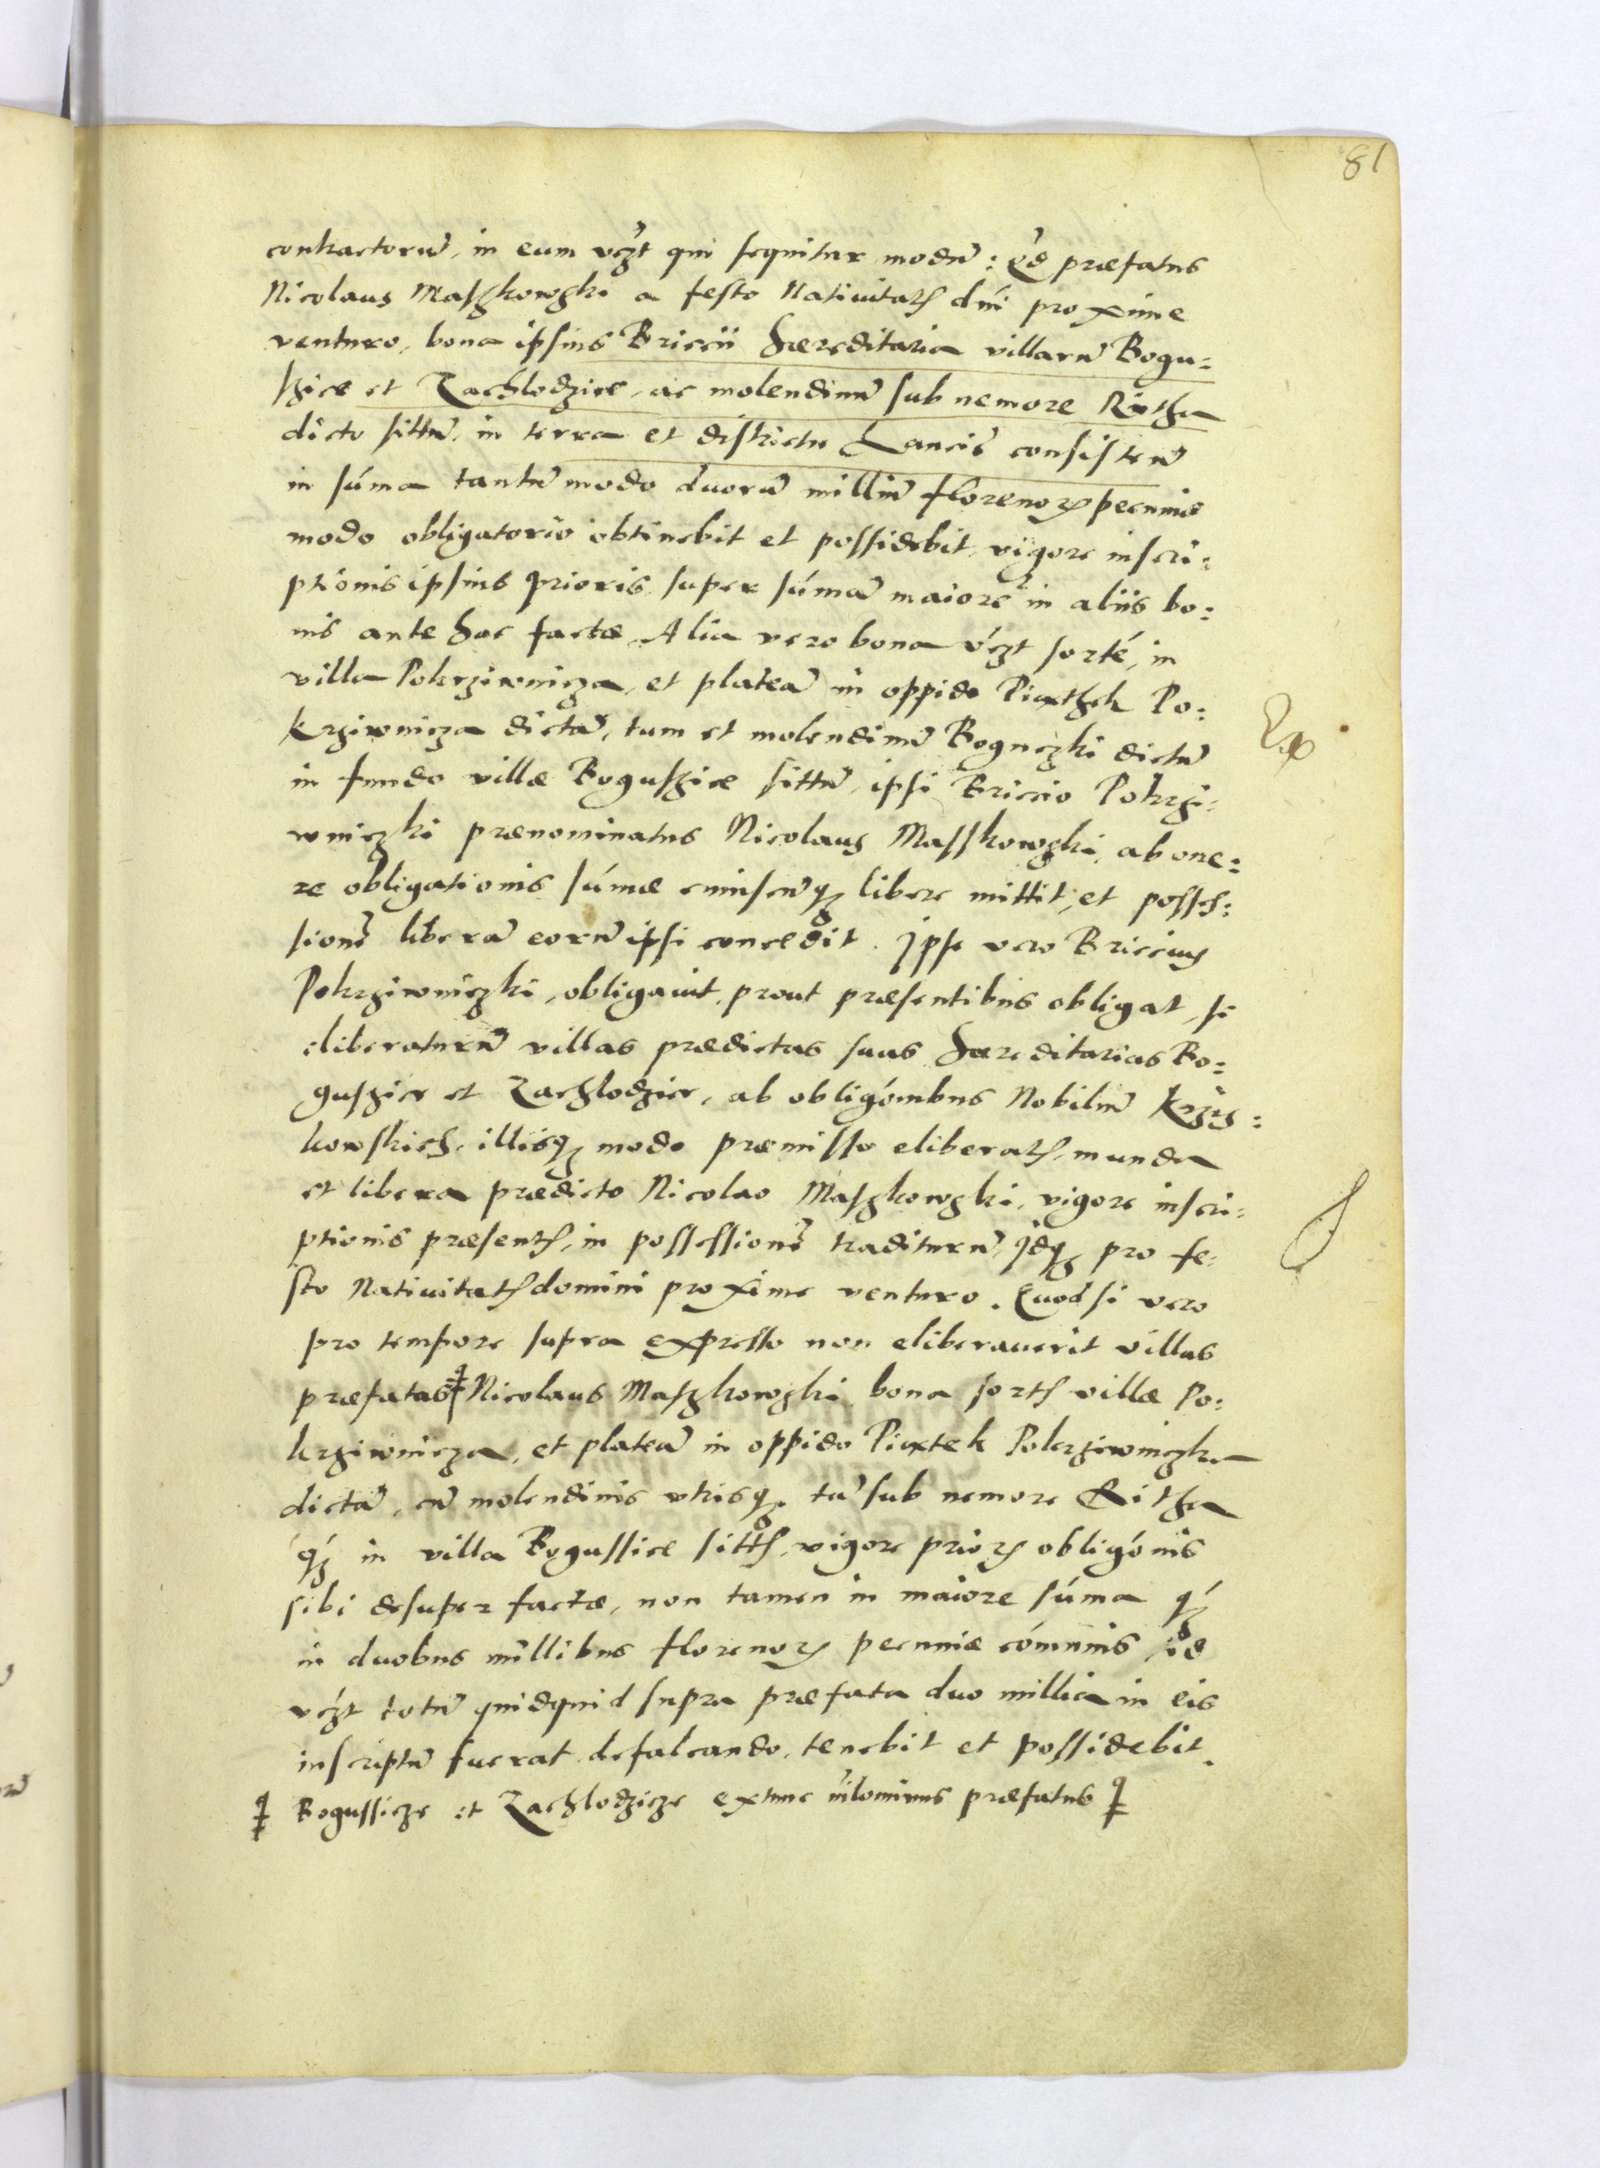 81
contractorũ, in eum vc̃zt qui sequitur modũ: q̃d præfatus
Nicolaus Maszkowski a festo Nativitatꝭ dn̄i proxime
venturo, bona ipsius Briccii hæreditaria villarũ Bogu=
szice et Zachlodzice, ac molendinũ sub nemore Ritha
dicto sittũ, in terra et districtu Lanciẽ consistenũ
in sum̃a tantũmodo duorũ milliũ florenoꝝ pecuniæ
modo obligatorio obtinebit et possidebit, vigore inscri=
ptionis ipsius prioris super sum̃ã maiorẽ in aliis bo=
nis ante hac factæ. Alia vero bona vc̃zt sortẽ, in
villa Pokrziwnicza, et plateã in oppido Piathek Po=
krziwnicza dictã, tum et molendinũ Boguczki dictũ
in fundo villæ Boguszice sittũ, ipsi Briccio Pokrzi=
wniczki prænominatus Nicolaus Masskowski, ab one=
re obligationis sum̃æ cuiuscũqꝫ libere mittit, et posses=
sionẽ liberã eorũ ipsi concedit. Ipse vero Briccius
Pokrziwniczki, obligavit, prout præsentibus obligat, se
eliberaturũ villas prædictas suas hæreditarias Bo=
guszice et Zachlodzice, ab oblig̃onibus Nobiliũ Krzis=
kowskich, illisqꝫ modo præmisso eliberatꝭ, munda
et libera prædicto Nicolao Maszkowski, vigore inscri=
ptionis præsentꝭ, in possessionẽ traditurũ, Idqꝫ pro fe=
sto Nativitatꝭ domini proxime venturo. Quod si vero
pro tempore supra expresso non eliberaverit villas
præfatas ‡ Nicolaus Maszkowski bona sortꝭ villæ Po=
krziwnicza, et plateã in oppido Piatek Pokrziwniczka
dictã, cũ molendinis utrisqꝫ, tã sub nemore Ritha
qꝫ́ in villa Bogussice sittꝭ, vigore prioꝝ oblig̃onis
sibi desuper factæ, non tamen in maiore sum̃a qꝫ́
in duobus millibus florenoꝝ pecuniæ com̃unis, id
vc̃zt totũ quidquid supra præfata duo millia in eis
inscriptũ fuerat defalcando, tenebit et possidebit.
‡ Bogussicze et Zachlodzicze extunc nı̃lominus præfatus ‡